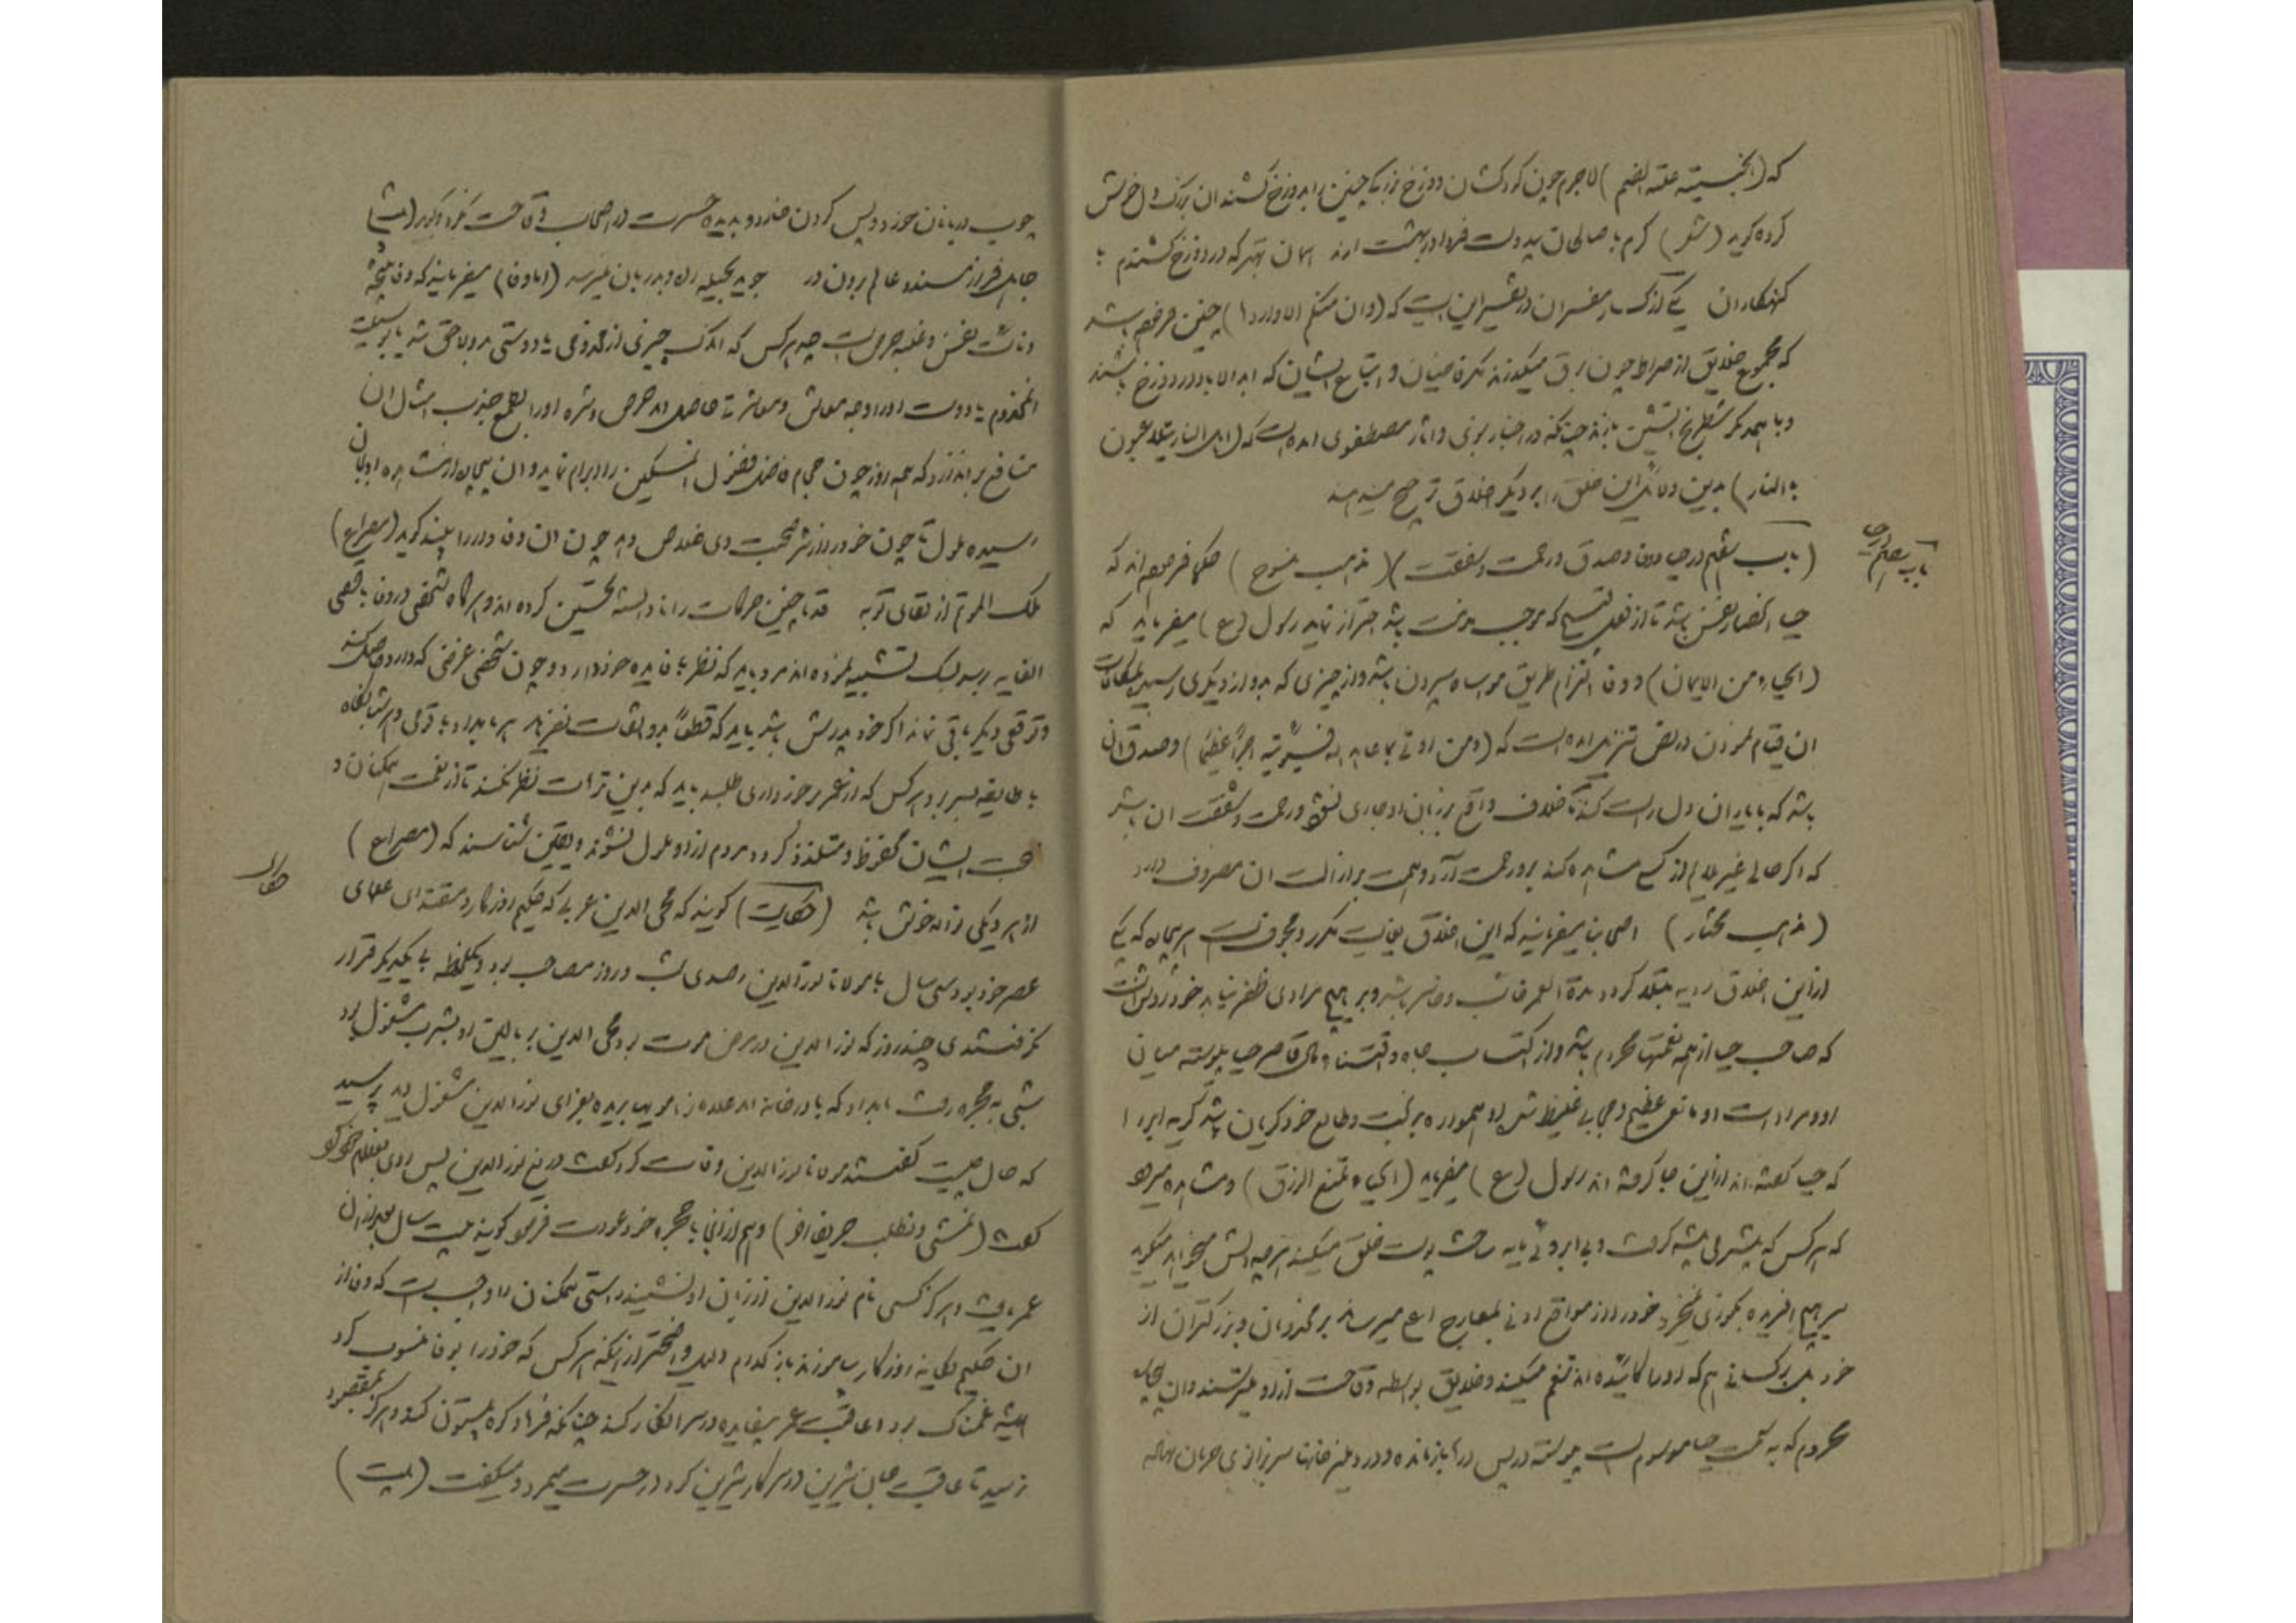 که (الجنسیته علته الضم) لاجرم چون کودکشان دوزخ بزبانیه چنین را بدوزخ کشند ان بزرک دل خوش
کرده کوید (شعر) کرم با صالحان بیدوست فردا در بهشت ارند همان بهتر که در دوزخ کشندم با
کنهکاران یکی از کبار مفسران در تفسیر این ایت که (وان منکم الا واردها) چنین فرموده باشد
که مجموع خلایق از صراط چون برق میکذرند مکر قاضیان و اتباع ایشان که ابد الاباد در دوزخ باشند
و با همدکر شطرنج اتشین بازند چنانکه در اخبار نبوی و اثار مصطفوی امده است که (اهل النار یتلاعبون
بالنار) بدین دلائل این خلق را بر دیکر اخلاق ترجیح مینهند
باب هفتم در حیا
(باب هفتم در حیا و وفا و صدق و رحمت و شفقت) (مذهب منسوخ) حکما فرموده اند که
حیا انحصار نفس باشد تا از فعل قبیح که موجب مذمت باشد احتراز نماید رسول (ع) میفرماید که
(الحیاء من الایمان) و وفا التزام طریق مواساة سپردن باشد و از چیزی که بدو از دیکری رسید بمکافات
ان قیام نمودن در نص تنزیل امده است که (ومن اوفی بما عاهد الله فسیؤتیه اجرا عظیما) و صدق ان
باشد که با یاران دل راست کند تا خلاف واقع بر زبان او جاری نشود و رحمت و شفقت ان باشد
که اکر حالی غیر ملایم از کسی مشاهده کند برو رحمت آرد و همت بر ازالت ان مصروف دارد
(مذهب مختار) اصحابنا میفرمایند که این اخلاق بغایت مکرر و مجوف است هر بیچاره که یکی
ازین اخلاق ردیه مبتلا کردد مدة العمر خائب و خاسر باشد و بر هیچ مرادی ظفر نیابد خود روشنست
که صاحب حیا از همه نعمتها محروم باشد و از اکتساب جاه و اقتناء مال قاصر حیا پیوسته میان
او و مرادات او مانعی عظیم و حجابی غلیظ شده او همواره بر بخت و طالع خود کریان باشد کریه ابر را
که حیا کفته اند ازین جا کرفته اند رسول (ع) میفرماید (الحیاء تمنع الرزق) و مشاهده میرود
که هر کس که بیشرمی پیشه کرفت و بی ابروئی مایه ساخت پوست خلق میکند هر چه دلش میخواهد میکوید
سر هیچ افریده بکوزی نمیخرد خود را از مواقع ادنی بمعارج اعلی میرساند بر مخدومان و بزرکتران از
خود بل بر کسانی هم که او را کائیده اند تنعم میکند و خلایق بواسطه وقاحت ازو میترسند و ان بیچاره
محروم که به سمت حیا موسوم است پیوسته در پس درها بازمانده و در دهلیز خانها سر بزانوی حرمان نهاده
چوب دربانان خورد و پس کردن خارد و بدیده حسرت در اصحاب وقاحت نکرد و کوید (بیت)
جاهل فراز مسند و عالم برون در جوید بحیله راه و بدربان نمیرسد (اما وفا) میفرمایند که وفا نتیجه
دنائت نفس و غلبه حرص است چه هر کس که اندک چیزی از مخدومی یا دوستی بدو لاحق شد یا بوسیلت
انمخدوم یا دوست او را وجه معاش و معاشرت حاصل امد حرص و شره او را بطمع جذب امثال ان
منافع بر ان دارد که همه روز چون حجام فاضل فضول انمسکین را ابرام نماید و ان بیچاره از مشاهده او بجان
رسیده ملول تا چون خود را از شر صحبت وی خلاص دهد چون ان وفادار را بیند کوید (مصراع)
ملک الموتم از لقای تو به قدما چنین حرکات را نادانسته تحسین کرده اند و هر کاه شخصی در وفا باقصی
الغایه برسد بسک تشبیه نموده اند مرد باید که نظر بفایده خود دارد و چون شخصی غرضی که دارد حاصل کند
و توقعی دیکر باقی نماند اکر خود پدرش باشد باید که قطعا بدو التفات نفرماید هر بامداد با قومی و هر شبانکاه
با طایفه بسر برد هر کس که از عمر برخورداری طلبد باید که بدین ترهات نظر نکند تا از نعمت همکنان و
صحبت ایشان محظوظ و متلذذ کردد مردم ازو ملول نشوند و یقین شناسد که (مصراع)
حکایت
از هر دیکی نواله خوش باشد (حکایت) کویند که محی الدین عربی که حکیم روزکار و مقتدای علمای
عصر خود بود سی سال با مولانا نورالدین رصدی شب و روز مصاحب بود و یکلحظه بی یکدیکر قرار
نکرفتندی چند روز که نورالدین در مرض موت بود محی الدین بر بالین او بشرب مشغول بود
شبی به حجره رفت بامداد که با در خانه امد غلامان را موی بریده بعزای نورالدین مشغول دید پرسید
که حال چیست کفتند مولانا نورالدین وفات کرد کفت دریغ نورالدین پس روی بغلام خود کرد و
کفت (نمشی و نطلب حریفا اخر) و هم از انجا بحجره خود عودت فرمود کویند بیست سال بعد از ان
عمر یافت و هرکز کسی نام نورالدین از زبان او نشنید راستی همکنان را واجب است که وفا از
ان حکیم یکانه روزکار بیاموزند باز کدام دلیل واضحتر از اینکه هر کس که خود را بوفا منسوب کرد
همیشه غمناک بود و عاقبت عمر بیفایده در سر انکار کند چنانکه فرهاد کوه بیستون کند و هرکز بمقصود
نرسید تا عاقبت جان شیرین در سر کار شیرین کرد در حسرت میمرد و میکفت (بیت)